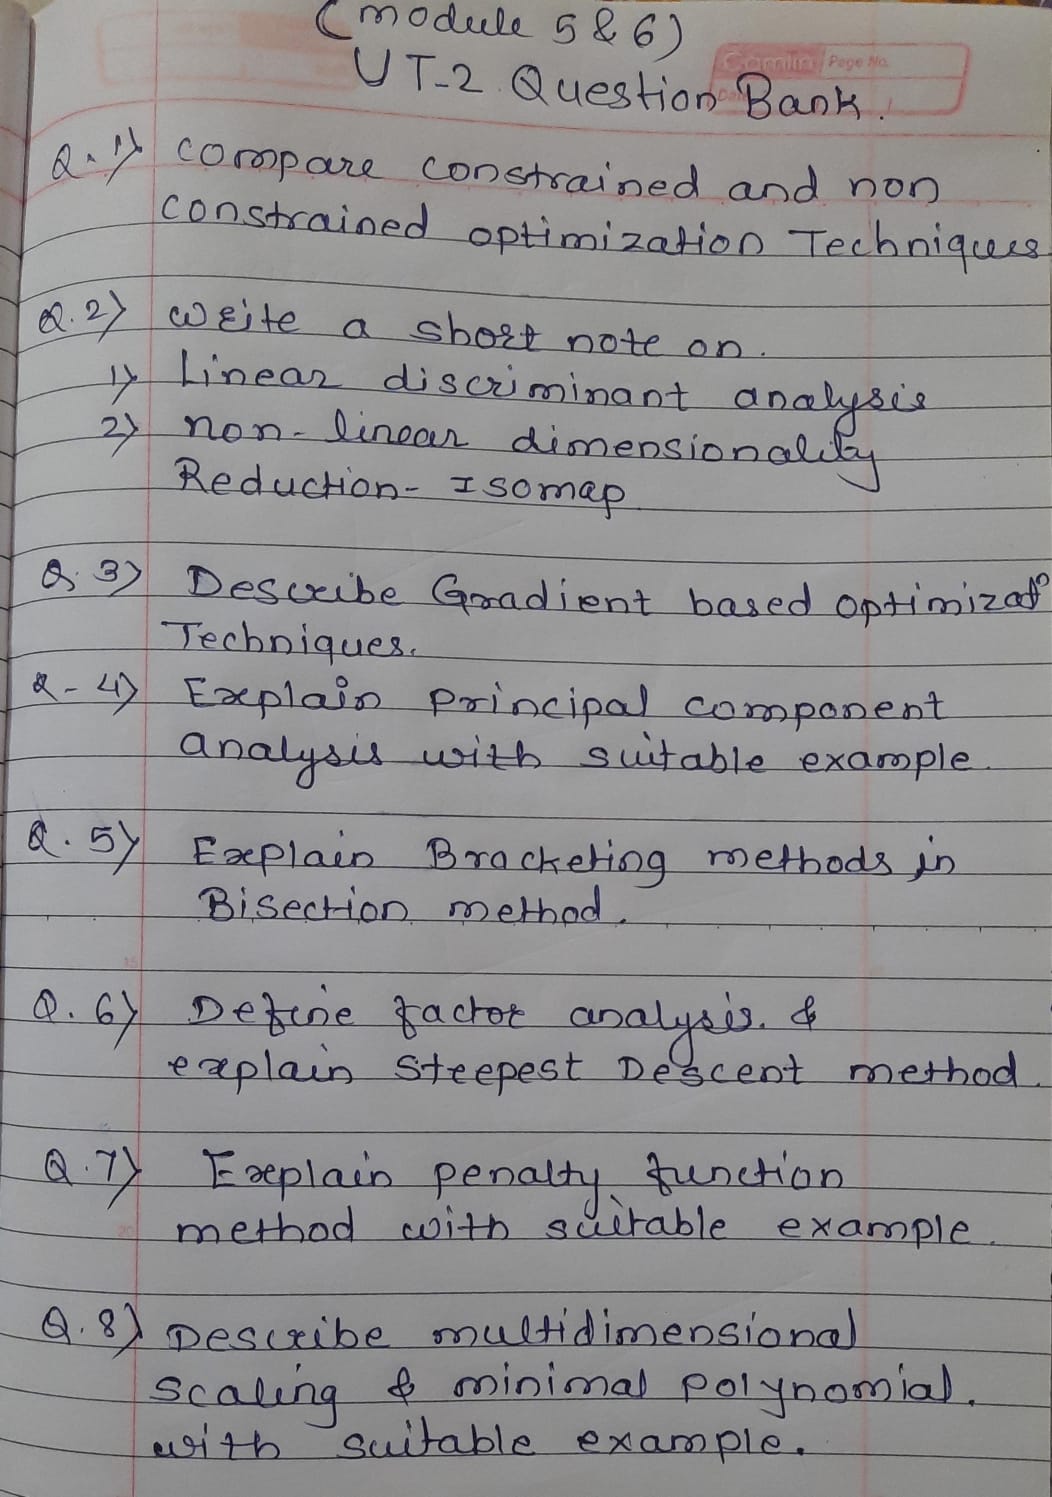 (module 5 & 6)
Camlin Page No.
UT-2 Question Bank.
Q.1) compare constrained and non
constrained optimization Techniques
Q.2) Write a short note on.
1) Linear discriminant analysis
2) non-linear dimensionality
Reduction- Isomap
Q.3) Describe Gradient based optimizatn
Techniques.
Q-4) Explain principal component
analysis with suitable example.
Q.5) Explain Bracketing methods in
Bisection method.
Q.6) Define factor analysis. &
explain Steepest Descent method.
Q.7) Explain penalty function
method with suitable example.
Q.8) Describe multidimensional
scaling & minimal polynomial.
with suitable example.